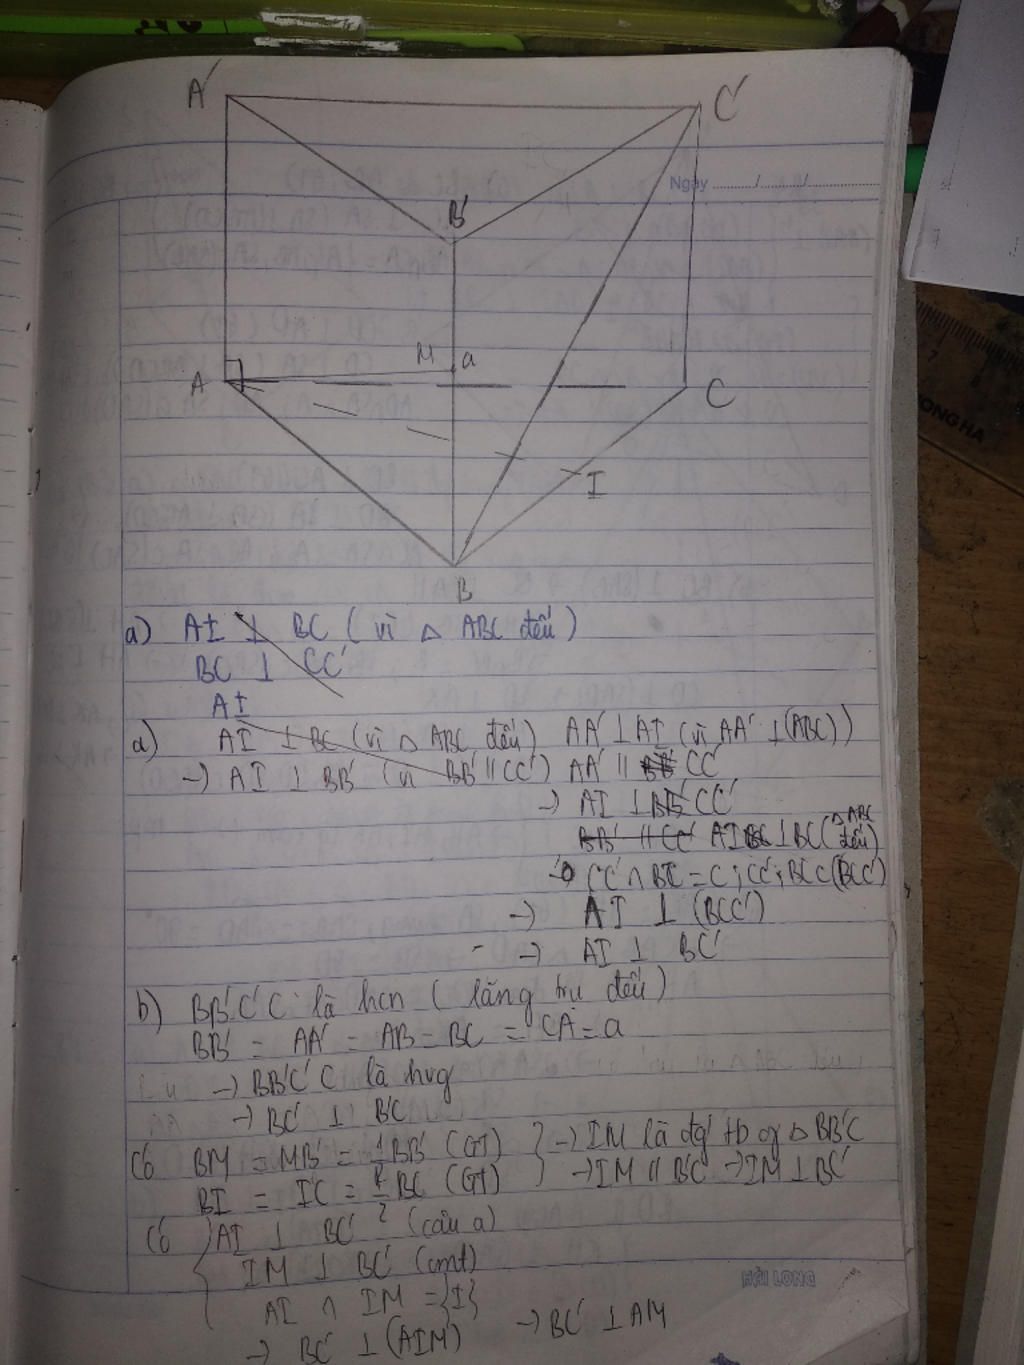 A'
C'
Ngày ......./......./...............
B'
M
a
A
C
I
B
a) AI ⊥ BC ( vì △ ABC đều )
BC ⊥ CC'
AI
a) AI ⊥ BC (vì △ ABC đều) AA' ⊥ AI (vì AA' ⊥ (ABC))
→ AI ⊥ BB' (vì BB' // CC') AA' // BB' CC'
→ AI ⊥ BB' CC'
BB' // CC' AI ⊥ BC (△ ABC đều)
CC' ∩ BC = C ; CC' ; BC ⊂ (BCC')
→ AI ⊥ (BCC')
→ AI ⊥ BC'
b) BB'C'C là hcn ( lăng trụ đều )
BB' = AA' = AB = BC = CA = a
→ BB'C'C là hvg
→ BC' ⊥ B'C
Có BM = MB' = 1/2 BB' (GT) } → IM là đg' tb of △ BB'C
BI = IC = 1/2 BC (GT) } → IM // B'C → IM ⊥ BC'
Có { AI ⊥ BC' (câu a)
IM ⊥ BC' (cmt)
AI ∩ IM = {I}
→ BC' ⊥ (AIM) → BC' ⊥ AM
HẢI LONG
ONG HA
7